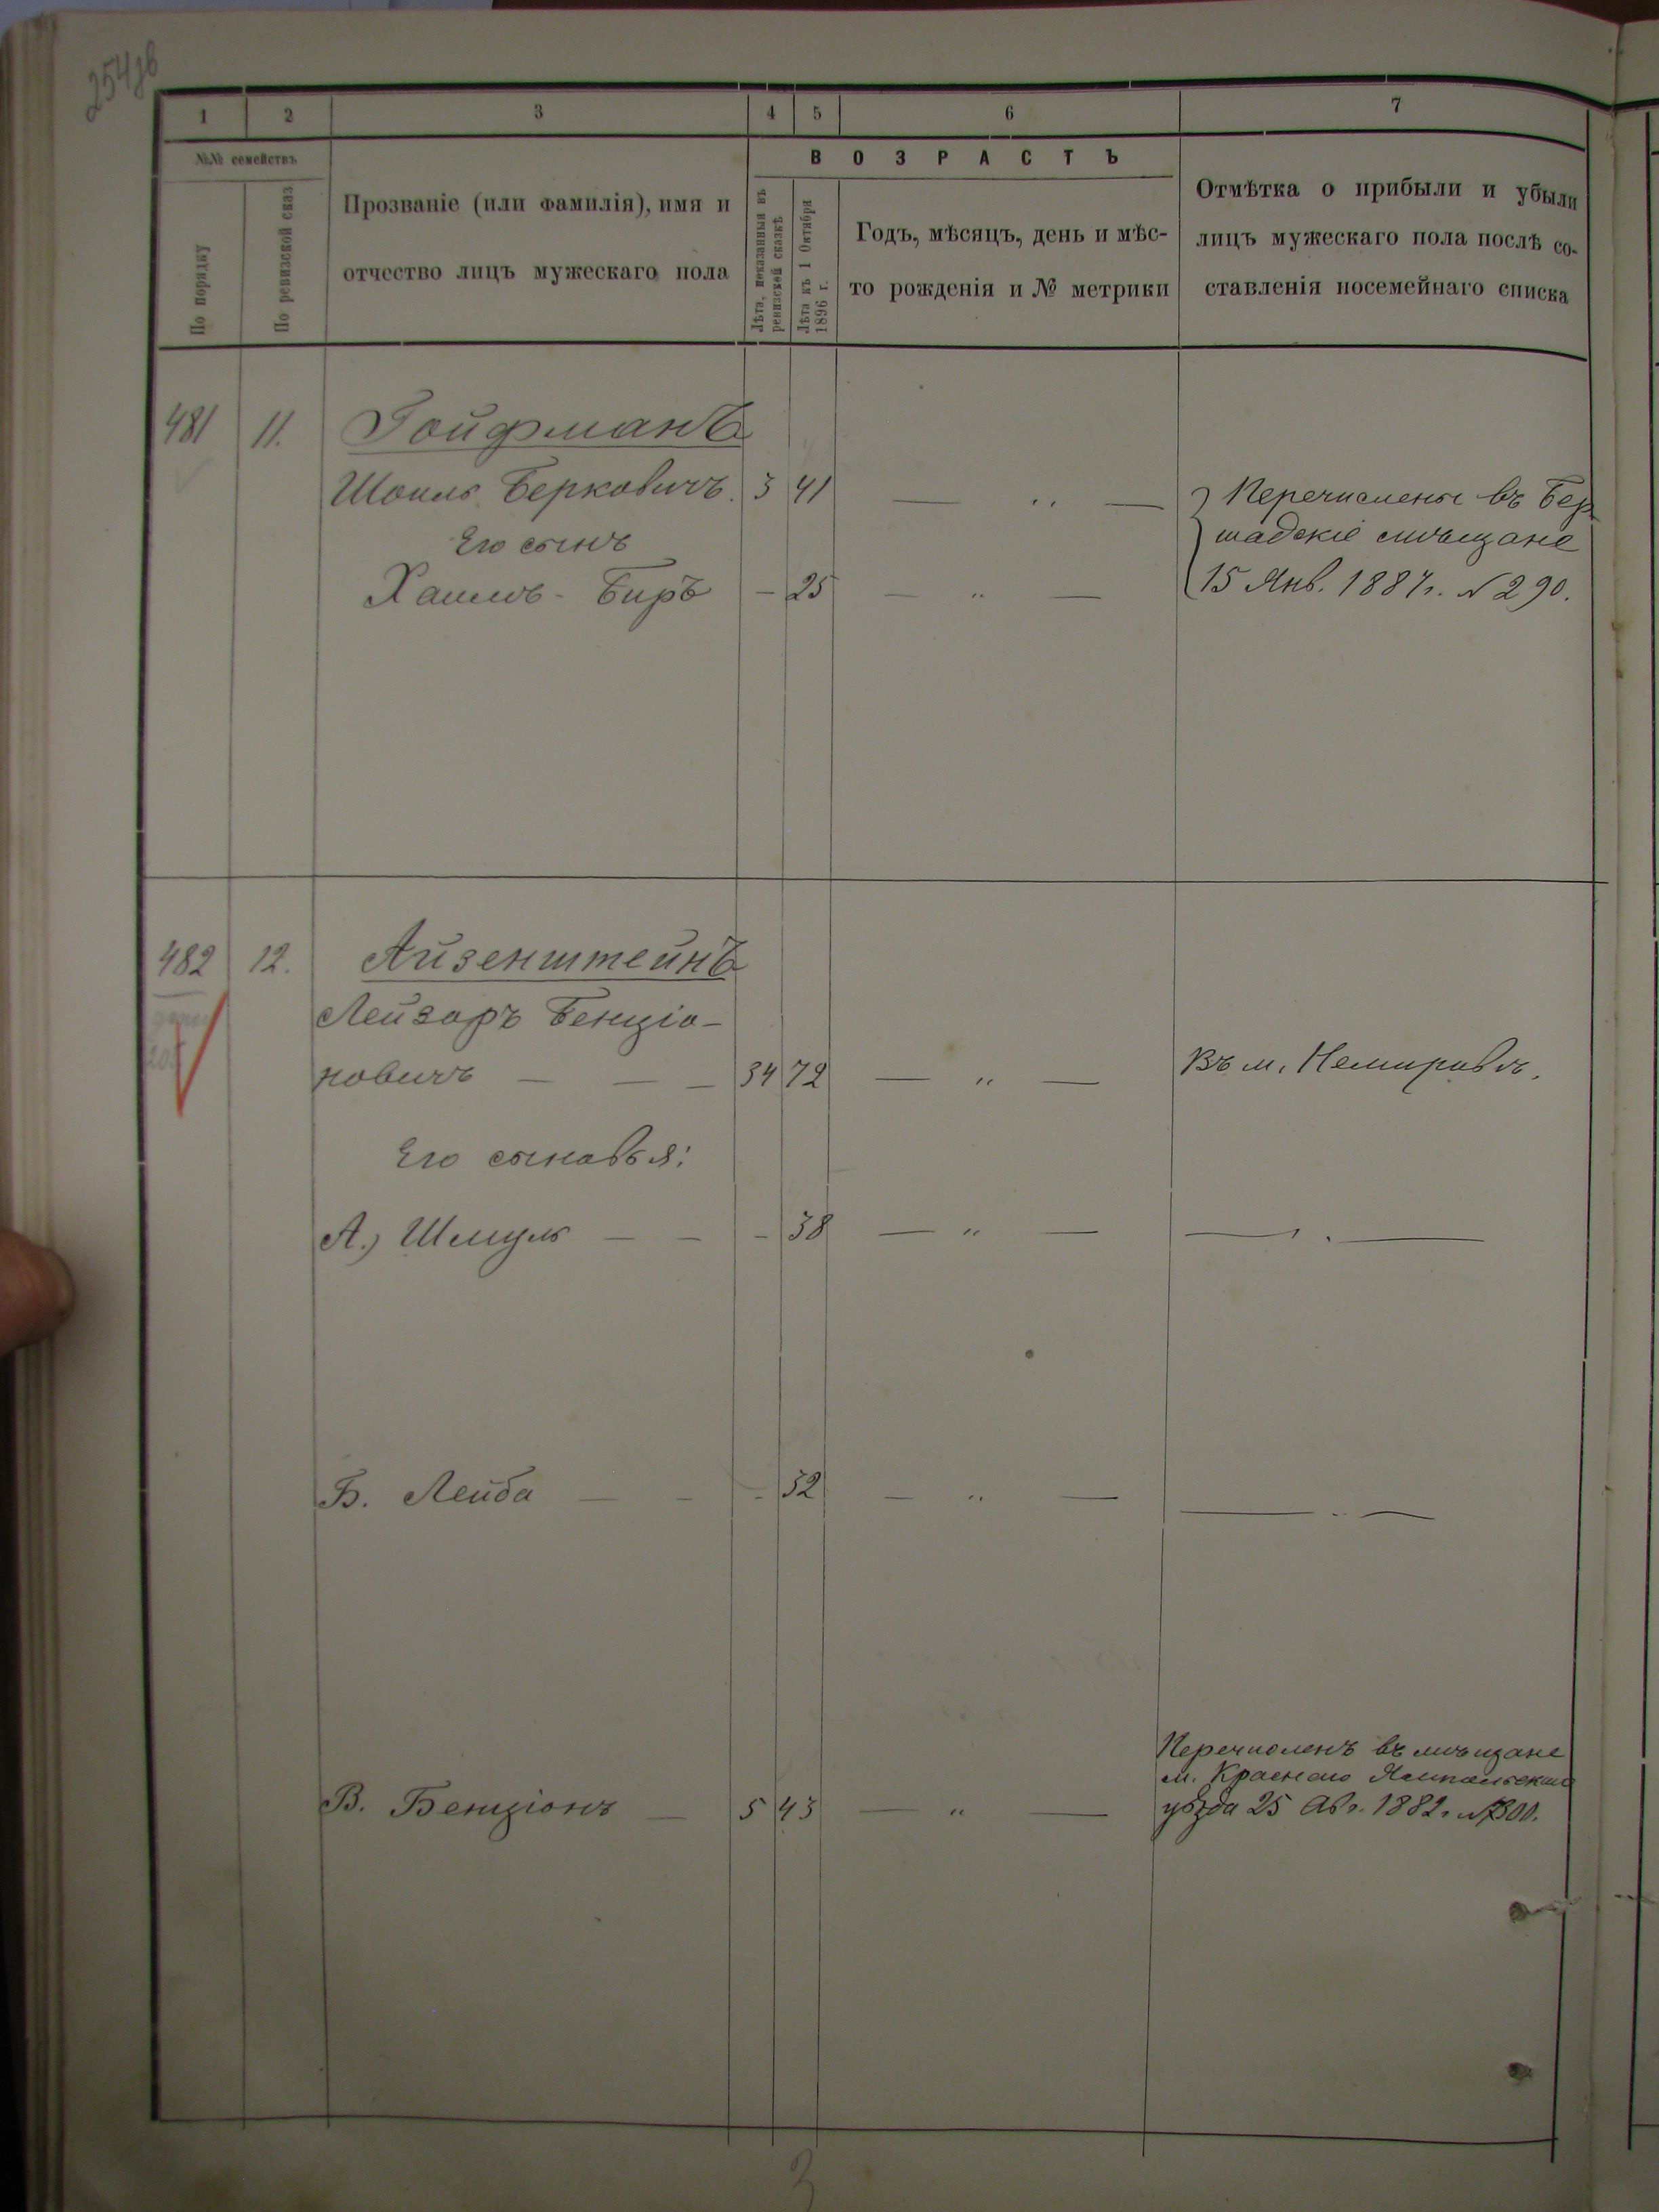 254 об
1 2 3 4 5 6 7
№№ семействъ
По порядку
По ревизской сказ
Прозваніе (или фамилія), имя и
отчество лицъ мужескаго пола
ВОЗРАСТЪ
Лѣта, показанныя въ
ревизской сказкѣ
Лѣта къ 1 Октября
1896 г.
Годъ, мѣсяцъ, день и мѣс-
то рожденія и № метрики
Отмѣтка о прибыли и убыли
лицъ мужескаго пола послѣ со-
ставленія посемейнаго списка
481 11. Гойфманъ
Шоиль Берковичъ. 3 41 — " — Перечислены въ Бер
Его сынъ шадскіе мѣщане
Хаимъ - Биръ — 25 — " — 15 Янв. 1887г. № 290.
482 12. Айзенштейнъ
Лейзоръ Бенціо-
новичъ — — — 34 72 — " — Въ м. Немировѣ.
Его сыновья:
А.) Шмуль — — — 38 — " — — " —
Б. Лейба — — — 32 — " — — " —
В. Бенціонъ — 5 43 — " — Перечисленъ въ мѣщане
м. Краснаго Ямпольскаго
уѣзда 25 Авг. 1882г. №
3